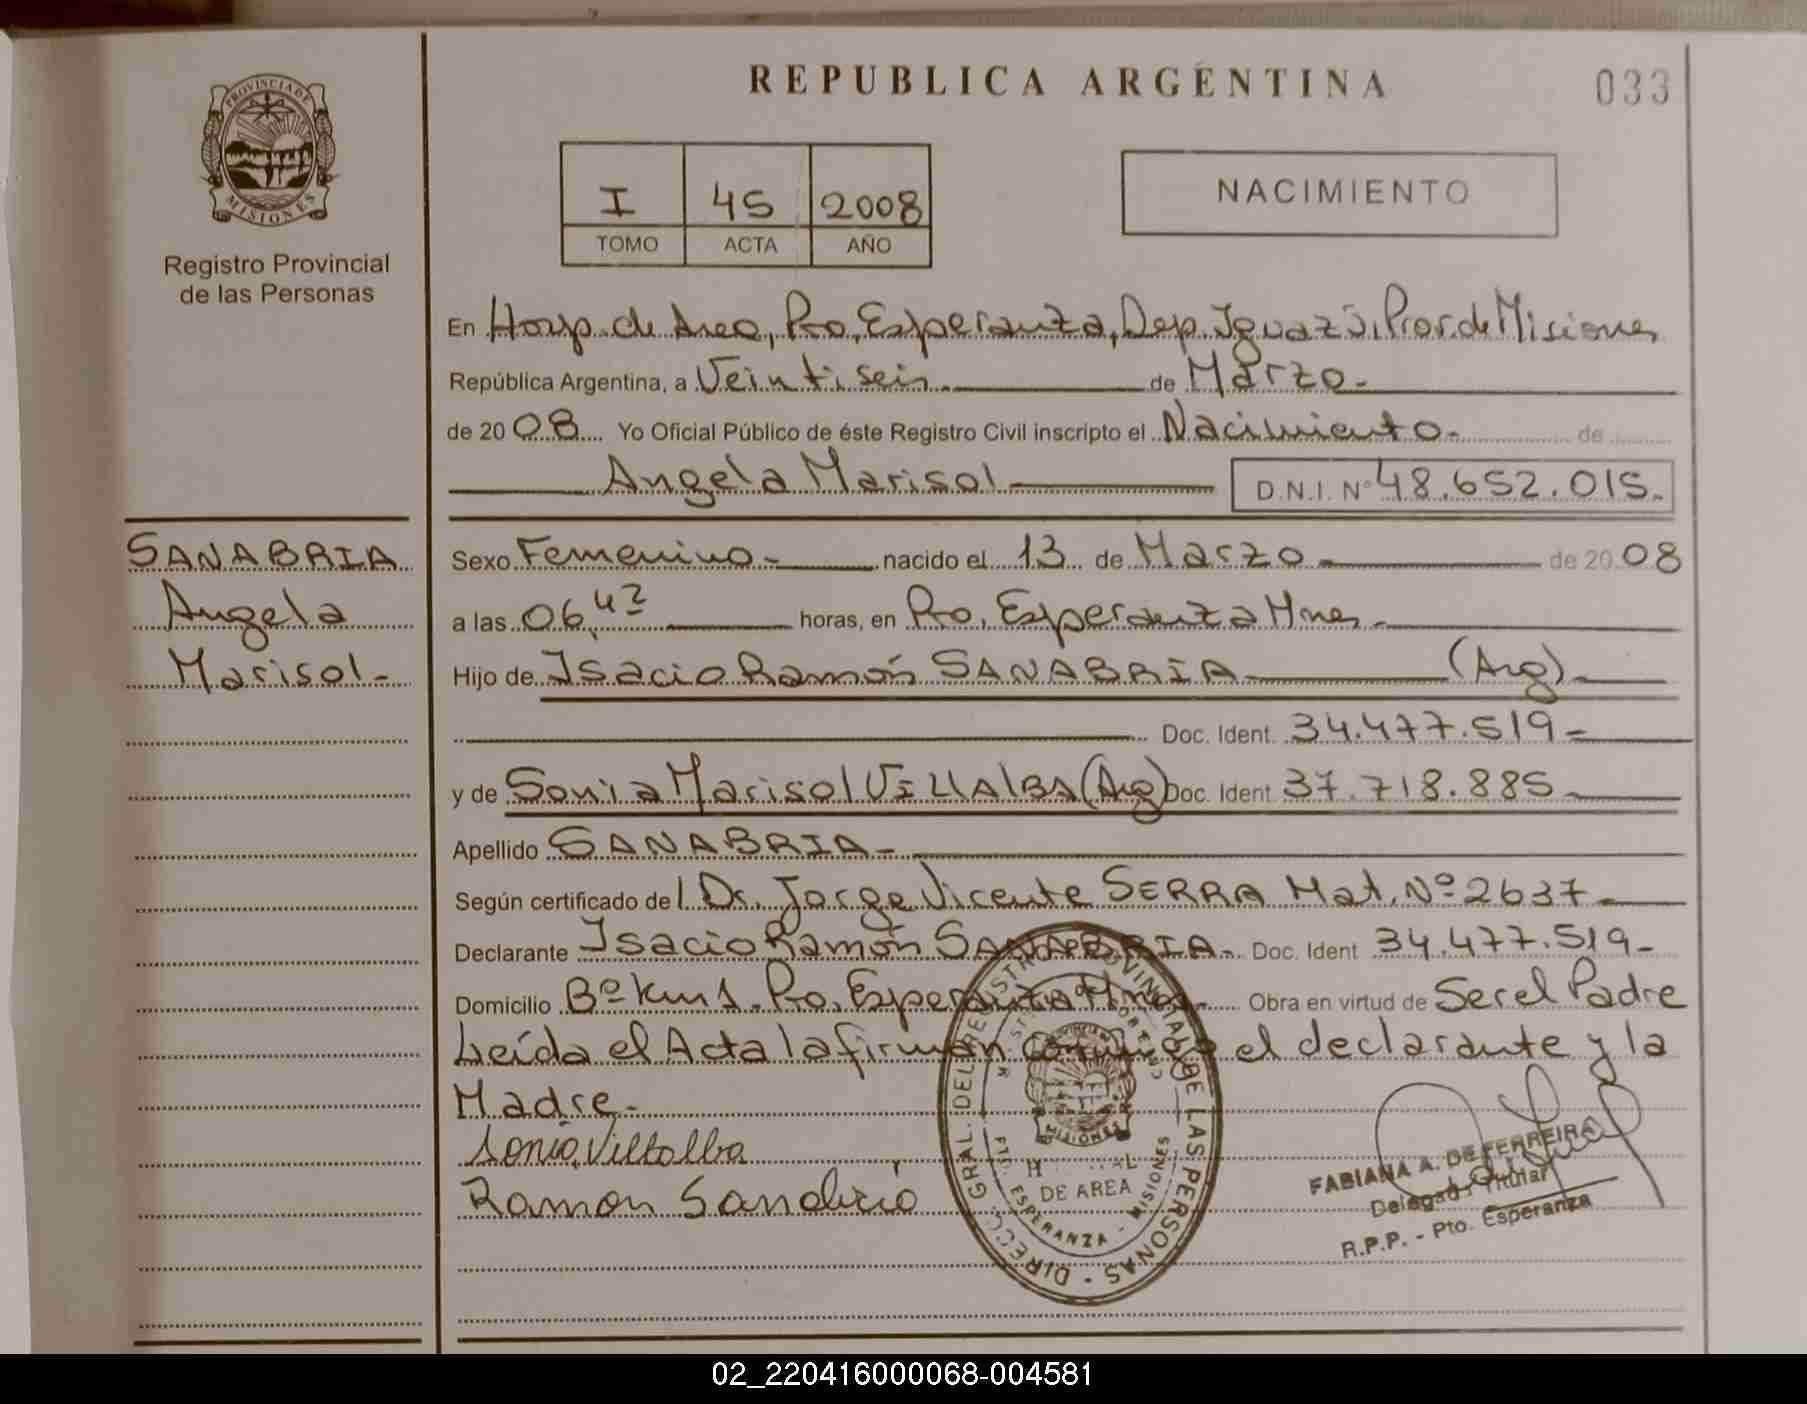 REPUBLICA ARGENTINA
033
PROVINCIA DE
MISIONES
Registro Provincial
de las Personas
I 45 2008
TOMO ACTA AÑO
NACIMIENTO
En Hosp. de Area, Pto. Esperanza, Dep. Iguazú, Prov. de Misiones
República Argentina, a Veintiseis.- de Marzo.-
de 2008 Yo Oficial Público de éste Registro Civil inscripto el Nacimiento.- de
Angela Marisol
D.N.I. Nº 48.652.015.-
SANABRIA
Angela
Marisol.-
Sexo Femenino.- nacido el 13 de Marzo.- de 2008
a las 06,42 horas, en Pto. Esperanza Mnes.-
Hijo de Isacio Ramón SANABRIA (Arg).-
Doc. Ident. 34.477.519.-
y de Sonia Marisol VILLALBA (Arg) Doc. Ident. 37.718.885.-
Apellido SANABRIA.-
Según certificado del Dr. Jorge Vicente SERRA Mat. Nº 2637.-
Declarante Isacio Ramón SANABRIA.- Doc. Ident 34.477.519.-
Domicilio Bº km 1. Pto. Esperanza Mnes.- Obra en virtud de Ser el Padre
Leída el Acta la firman conmigo el declarante y la
Madre.-
Sonia Villalba
Ramon Sanabria
DIRECC. GRAL. DEL REGISTRO PROVINCIAL DE LAS PERSONAS
PROVINCIA DE
MISIONES
DE AREA
PTO. ESPERANZA - MISIONES
FABIANA A. DE FERREIRA
Delegada Titular
R.P.P. - Pto. Esperanza
02_220416000068-004581